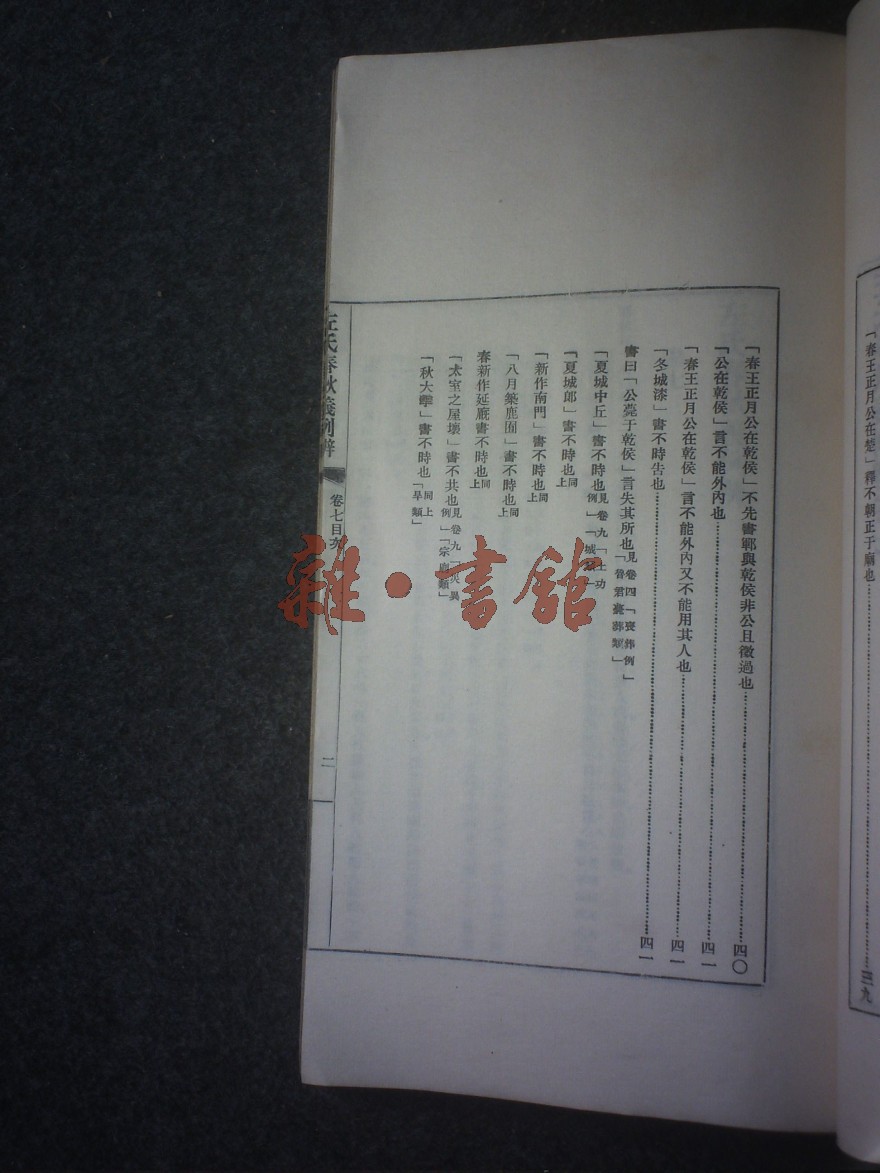 「春王正月公在楚」釋不朝正于廟也 三九
「春王正月公在乾侯」不先書鄆與乾侯非公且徵過也 四〇
「公在乾侯」言不能外內也 四一
「春王正月公在乾侯」言不能外內又不能用其人也 四一
「冬城漆」書不時告也 四一
書曰「公薨于乾侯」言失其所也見卷四「喪葬例」「魯君薨葬類」
「夏城中丘」書不時也見卷九「土功例」「城類」
「夏城郎」書不時也同上
「新作南門」書不時也同上
「八月築鹿囿」書不時也同上
春新作延廄書不時也同上
「大室之屋壞」書不共也見卷九「災異例」「宗廟類」
「秋大雩」書不時也同上「旱類」
左氏春秋義例辨
卷七目次
二
雜·書館